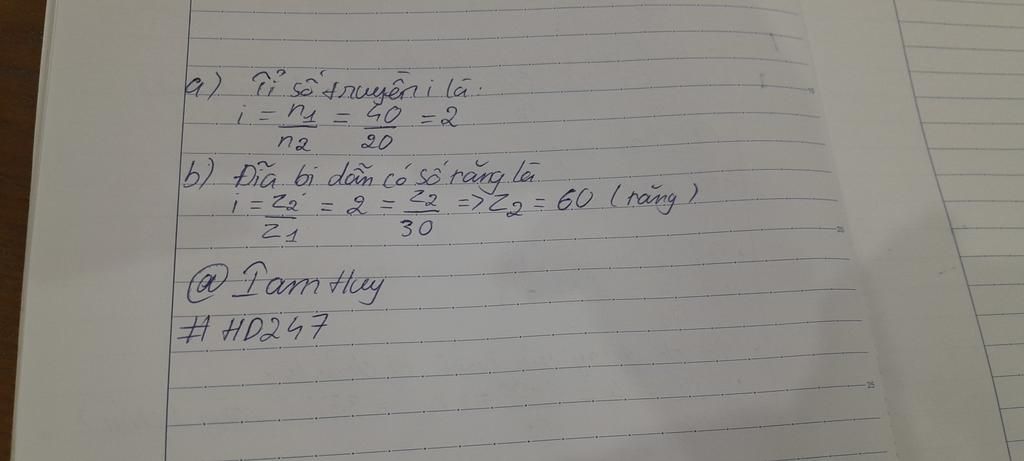 a) Tỉ số truyền i là:
i = n1/n2 = 40/20 = 2
b) Đĩa bi dẫn có số răng là
i = Z2/Z1 = 2 = Z2/30 => Z2 = 60 (răng)
@ I am Huy
# HD247